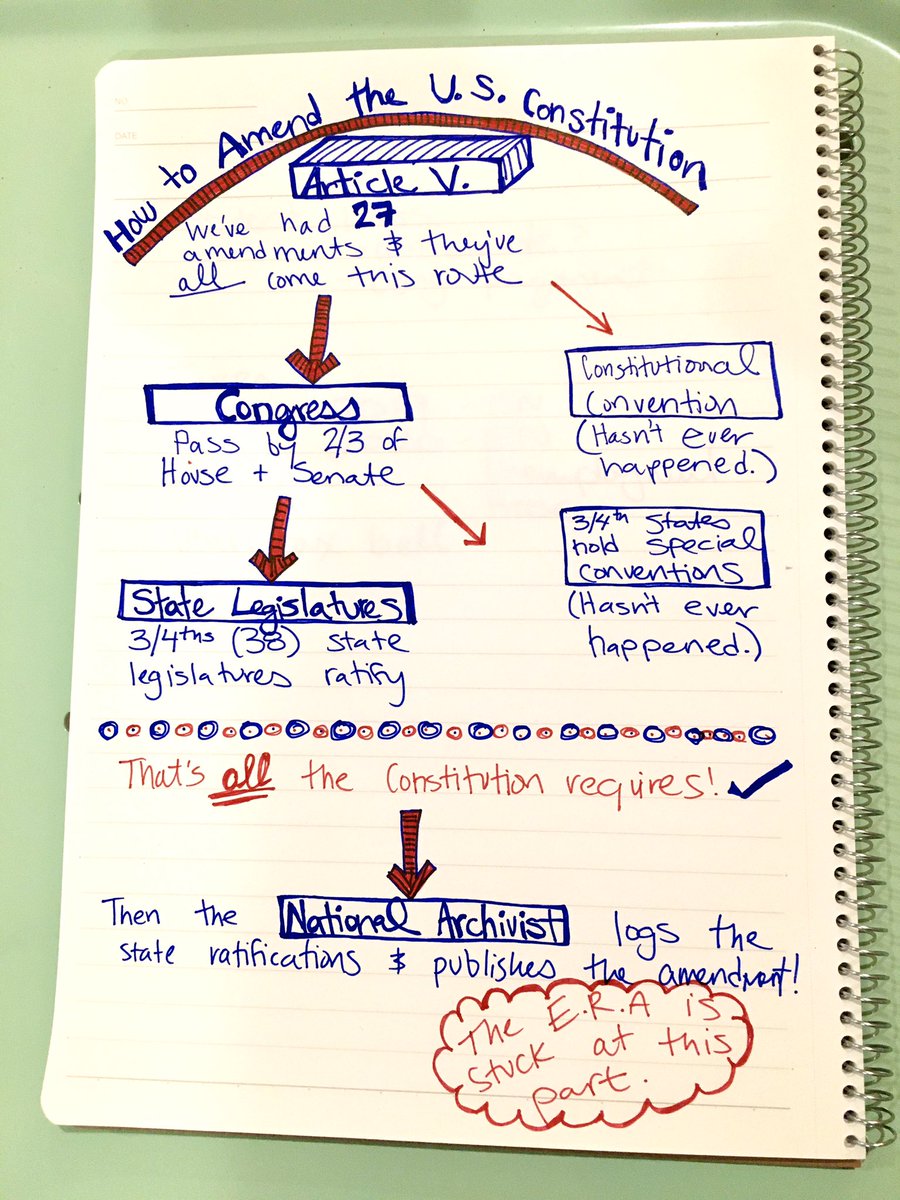 How to Amend the U.S. Constitution
Article V.
We've had 27
amendments & they've
all come this route
Congress
Pass by 2/3 of
House + Senate
Constitutional
Convention
(Hasn't ever
happened.)
3/4th States
hold special
conventions
(Hasn't ever
happened.)
State Legislatures
3/4ths (38) state
legislatures ratify
That's all the Constitution requires!
Then the National Archivist logs the
state ratifications & publishes the amendment!
The E.R.A is
stuck at this
part.